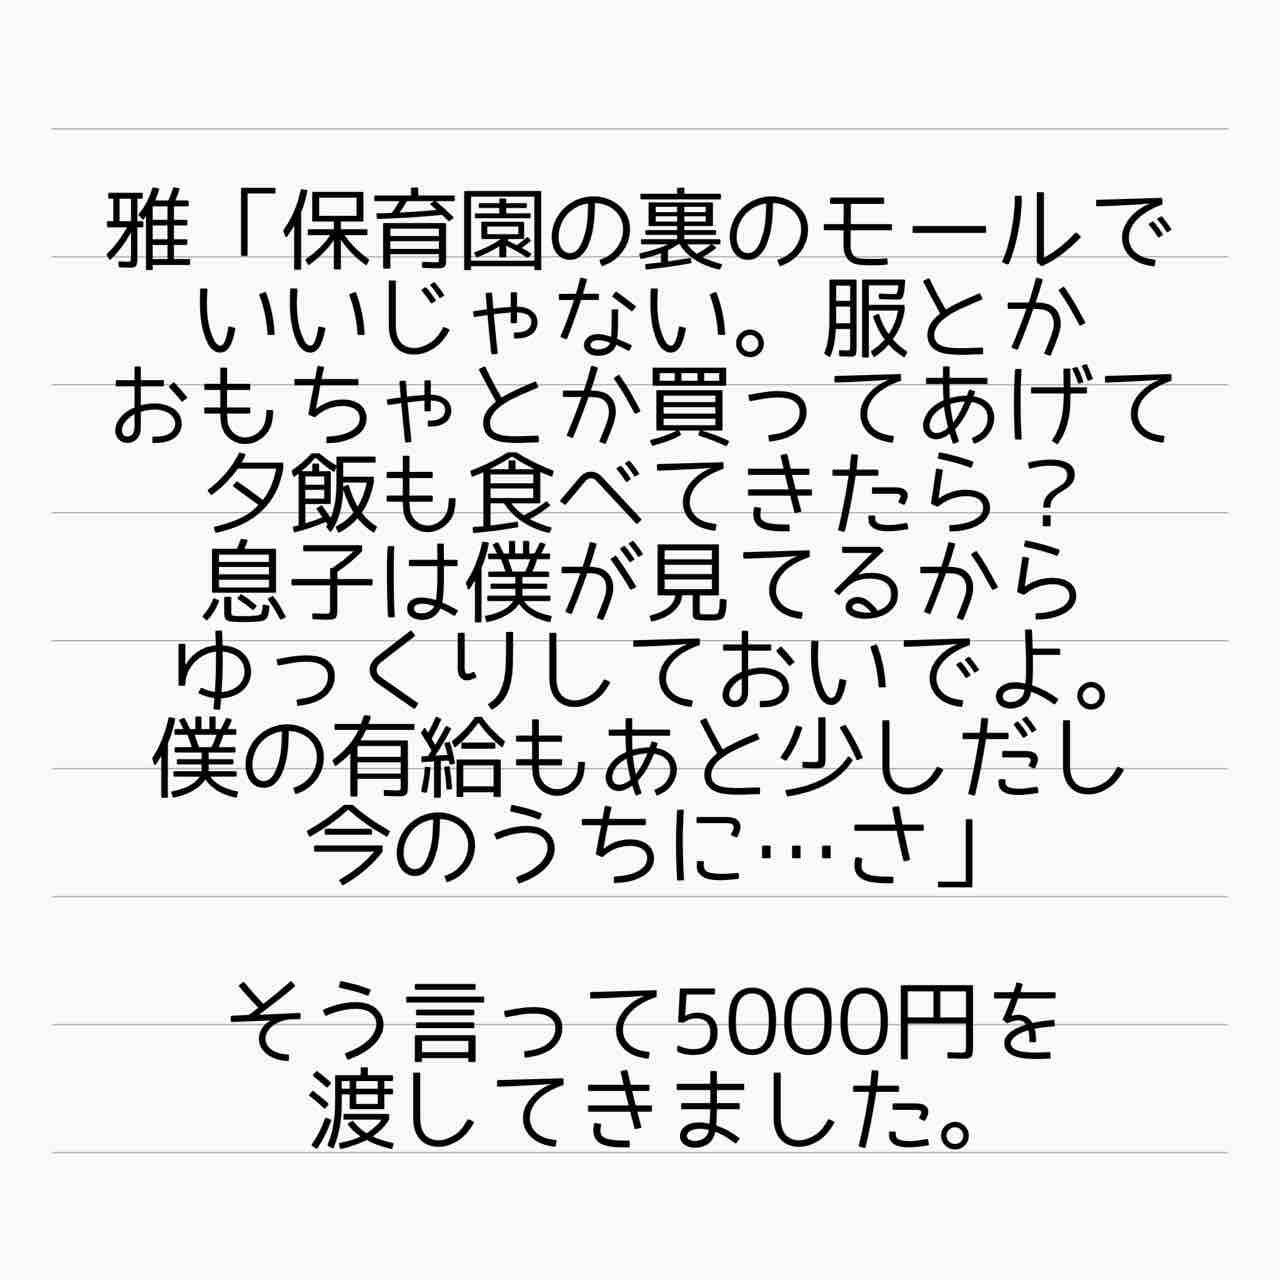 雅「保育園の裏のモールで
いいじゃない。服とか
おもちゃとか買ってあげて
夕飯も食べてきたら？
息子は僕が見てるから
ゆっくりしておいでよ。
僕の有給もあと少しだし
今のうちに…さ」
そう言って5000円を
渡してきました。